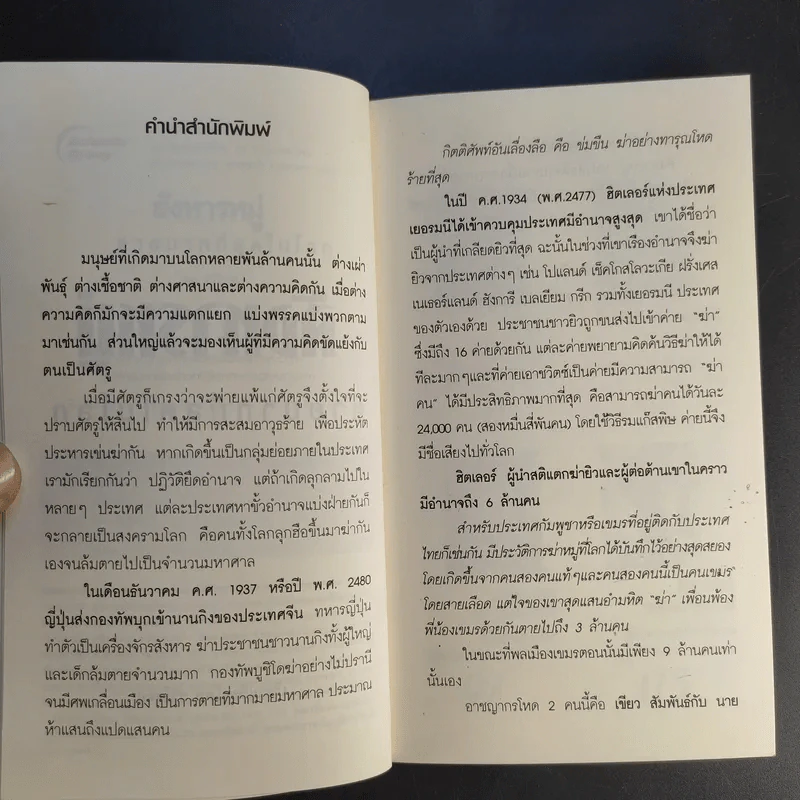 คำนำสำนักพิมพ์
มนุษย์ที่เกิดมาบนโลกหลายพันล้านคนนั้น ต่างเผ่า
พันธุ์ ต่างเชื้อชาติ ต่างศาสนาและต่างความคิดกัน เมื่อต่าง
ความคิดก็มักจะมีความแตกแยก แบ่งพรรคแบ่งพวกตาม
มาเช่นกัน ส่วนใหญ่แล้วจะมองเห็นผู้ที่มีความคิดขัดแย้งกับ
ตนเป็นศัตรู
เมื่อมีศัตรูก็เกรงว่าจะพ่ายแพ้แก่ศัตรูจึงตั้งใจที่จะ
ปราบศัตรูให้สิ้นไป ทำให้มีการสะสมอาวุธร้าย เพื่อประหัต
ประหารเข่นฆ่ากัน หากเกิดขึ้นเป็นกลุ่มย่อยภายในประเทศ
เรามักเรียกกันว่า ปฏิวัติยึดอำนาจ แต่ถ้าเกิดลุกลามไปใน
หลายๆ ประเทศ แต่ละประเทศหาขั้วอำนาจแบ่งฝ่ายกันก็
จะกลายเป็นสงครามโลก คือคนทั้งโลกลุกฮือขึ้นมาฆ่ากัน
เองจนล้มตายไปเป็นจำนวนมหาศาล
ในเดือนธันวาคม ค.ศ. 1937 หรือปี พ.ศ. 2480
ญี่ปุ่นส่งกองทัพบุกเข้านานกิงของประเทศจีน ทหารญี่ปุ่น
ทำตัวเป็นเครื่องจักรสังหาร ฆ่าประชาชนชาวนานกิงทั้งผู้ใหญ่
และเด็กล้มตายจำนวนมาก กองทัพบูชิโดฆ่าอย่างไม่ปรานี
จนมีศพเกลื่อนเมือง เป็นการตายที่มากมายมหาศาล ประมาณ
ห้าแสนถึงแปดแสนคน
กิตติศัพท์อันเลื่องลือ คือ ข่มขืน ฆ่าอย่างทารุณโหด
ร้ายที่สุด
ในปี ค.ศ.1934 (พ.ศ.2477) ฮิตเลอร์แห่งประเทศ
เยอรมนีได้เข้าควบคุมประเทศมีอำนาจสูงสุด เขาได้ชื่อว่า
เป็นผู้นำที่เกลียดยิวที่สุด ฉะนั้นในช่วงที่เขาเรืองอำนาจจึงฆ่า
ยิวจากประเทศต่างๆ เช่น โปแลนด์ เช็คโกสโลวะเกีย ฝรั่งเศส
เนเธอร์แลนด์ ฮังการี เบลเยียม กรีก รวมทั้งเยอรมนี ประเทศ
ของตัวเองด้วย ประชาชนชาวยิวถูกขนส่งไปเข้าค่าย “ฆ่า”
ซึ่งมีถึง 16 ค่ายด้วยกัน แต่ละค่ายพยายามคิดค้นวิธีฆ่าให้ได้
ทีละมากๆและที่ค่ายเอาชวิตซ์เป็นค่ายมีความสามารถ “ฆ่า
คน” ได้มีประสิทธิภาพมากที่สุด คือสามารถฆ่าคนได้วันละ
24,000 คน (สองหมื่นสี่พันคน) โดยใช้วิธีรมแก๊สพิษ ค่ายนี้จึง
มีชื่อเสียงไปทั่วโลก
ฮิตเลอร์ ผู้นำสติแตกฆ่ายิวและผู้ต่อต้านเขาในคราว
มีอำนาจถึง 6 ล้านคน
สำหรับประเทศกัมพูชาหรือเขมรที่อยู่ติดกับประเทศ
ไทยก็เช่นกัน มีประวัติการฆ่าหมู่ที่โลกได้บันทึกไว้อย่างสุดสยอง
โดยเกิดขึ้นจากคนสองคนแท้ๆและคนสองคนนี้เป็นคนเขมร
โดยสายเลือด แต่ใจของเขาสุดแสนอำมหิต “ฆ่า” เพื่อนพ้อง
พี่น้องเขมรด้วยกันตายไปถึง 3 ล้านคน
ในขณะที่พลเมืองเขมรตอนนั้นมีเพียง 9 ล้านคนเท่า
นั้นเอง
อาชญากรโหด 2 คนนี้คือ เขียว สัมพันธ์กับ นาย